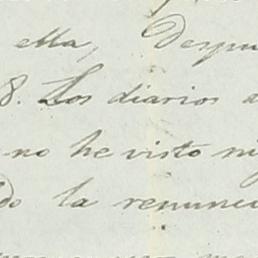 ella, Despu
8. Los diarios d
no he visto ni
do la renunci